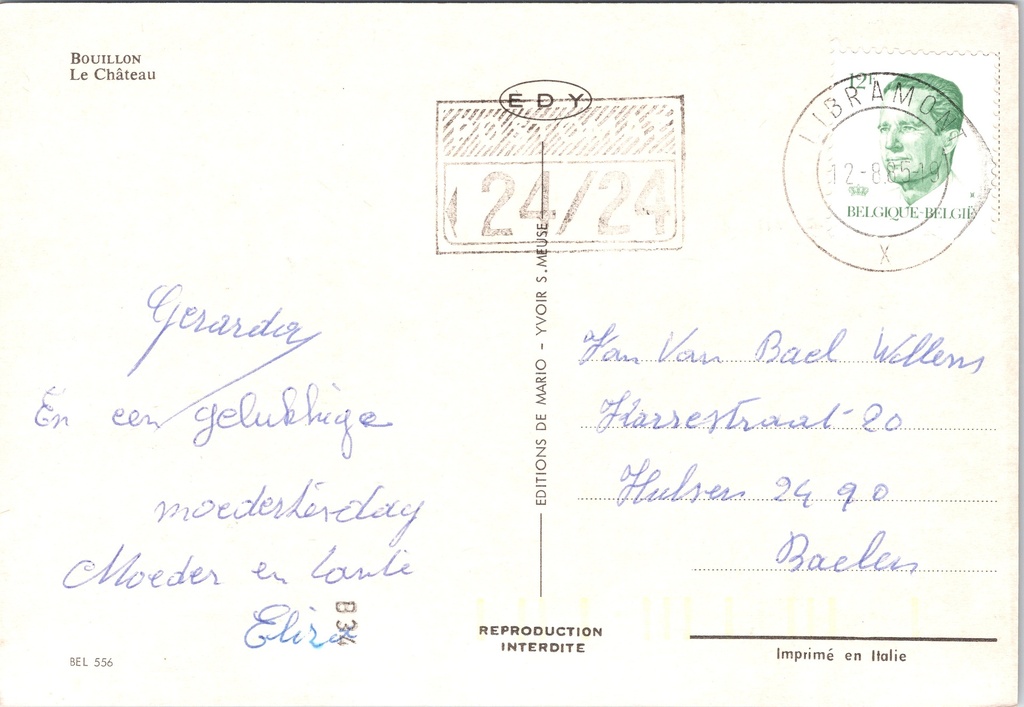 BOUILLON
Le Château
EDY
24/24
12F
LIBRAMONT
12-8.85-19
X
BELGIQUE-BELGIË
Gerarda
En een gelukkige
moederkesdag
Moeder en tante
Eliza
B34
BEL 556
EDITIONS DE MARIO - YVOIR S. MEUSE
REPRODUCTION
INTERDITE
Jan Van Bael Willems
Karrestraat 20
Hulsen 24 90
Baelen
Imprimé en Italie